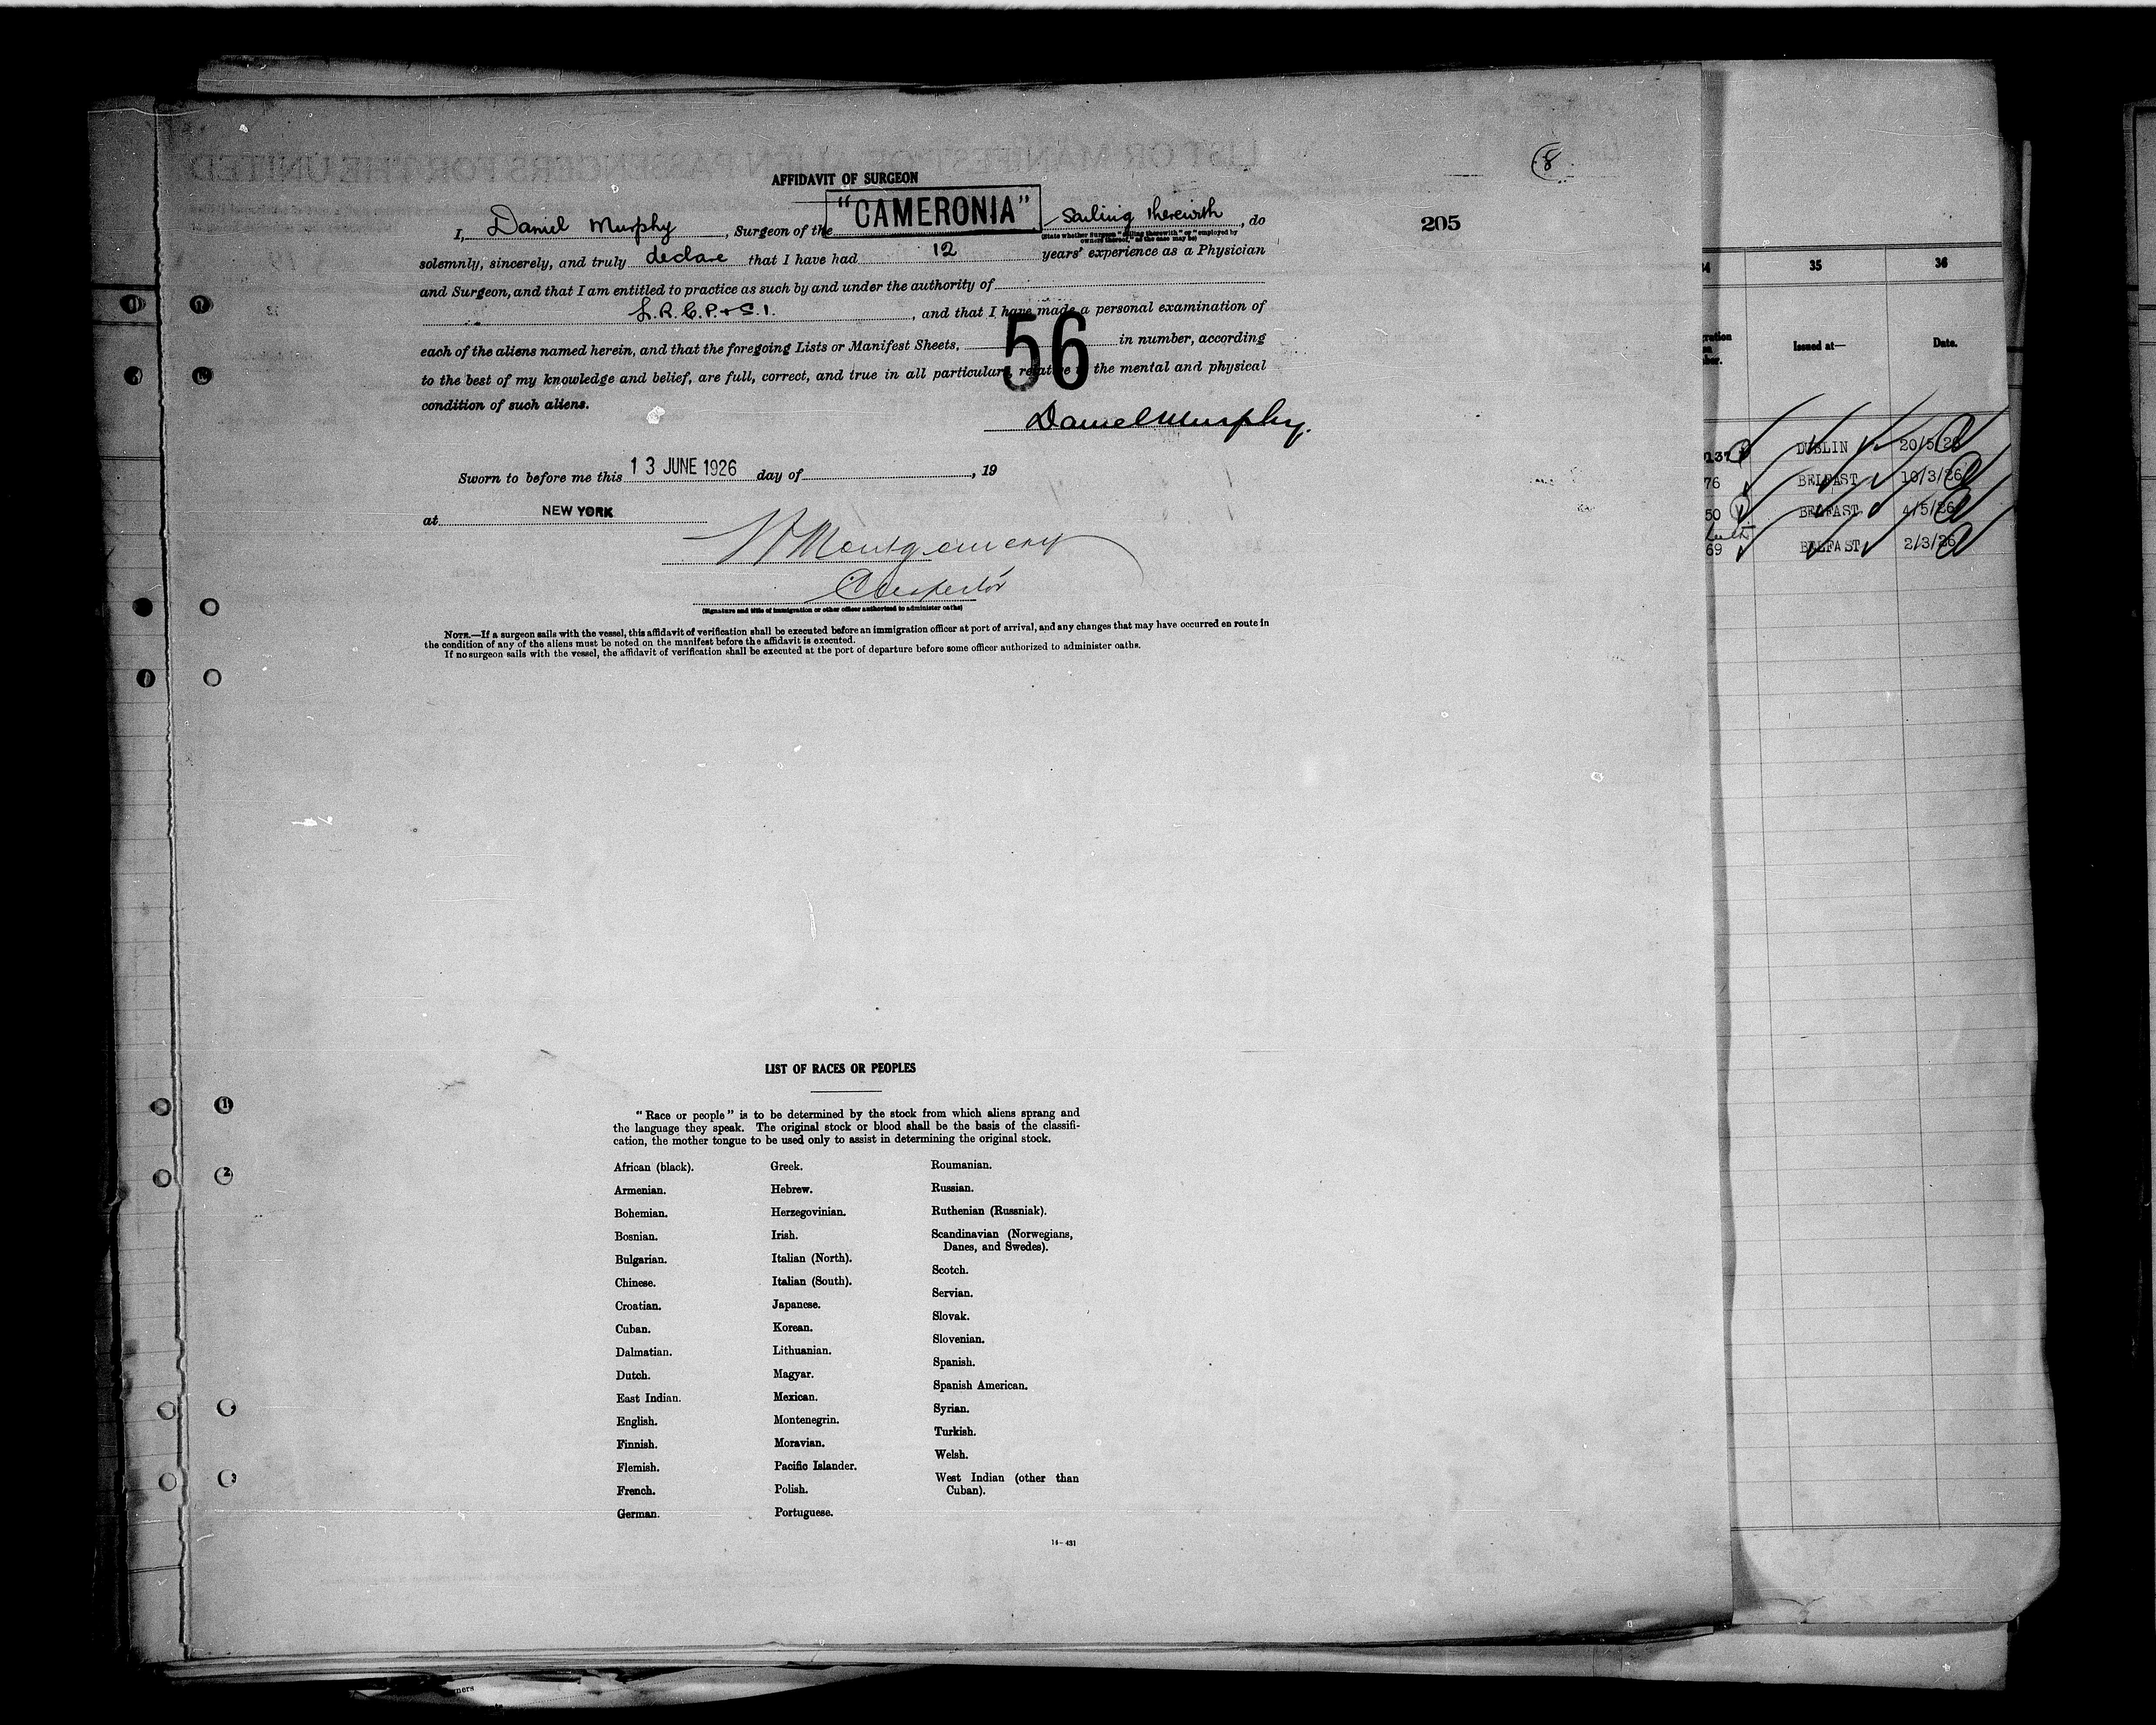 8
AFFIDAVIT OF SURGEON
205
I, Daniel Murphy, Surgeon of the "CAMERONIA" Sailing therewith, do
(State whether Surgeon "sailing therewith" or "employed by
owners thereof," as the case may be)
solemnly, sincerely, and truly declare that I have had 12 years' experience as a Physician
and Surgeon, and that I am entitled to practice as such by and under the authority of
L.R.C.P. & S.I., and that I have made a personal examination of
each of the aliens named herein, and that the foregoing Lists or Manifest Sheets, 56 in number, according
to the best of my knowledge and belief, are full, correct, and true in all particulars, relative to the mental and physical
condition of such aliens.
Daniel Murphy.
Sworn to before me this 13 JUNE 1926 day of , 19
at NEW YORK
Montgomery
Inspector
(Signature and title of immigration or other officer authorized to administer oaths)
NOTE.—If a surgeon sails with the vessel, this affidavit of verification shall be executed before an immigration officer at port of arrival, and any changes that may have occurred en route in
the condition of any of the aliens must be noted on the manifest before the affidavit is executed.
If no surgeon sails with the vessel, the affidavit of verification shall be executed at the port of departure before some officer authorized to administer oaths.
LIST OF RACES OR PEOPLES
"Race or people" is to be determined by the stock from which aliens sprang and
the language they speak. The original stock or blood shall be the basis of the classifi-
cation, the mother tongue to be used only to assist in determining the original stock.
African (black).
Armenian.
Bohemian.
Bosnian.
Bulgarian.
Chinese.
Croatian.
Cuban.
Dalmatian.
Dutch.
East Indian.
English.
Finnish.
Flemish.
French.
German.
Greek.
Hebrew.
Herzegovinian.
Irish.
Italian (North).
Italian (South).
Japanese.
Korean.
Lithuanian.
Magyar.
Mexican.
Montenegrin.
Moravian.
Pacific Islander.
Polish.
Portuguese.
Roumanian.
Russian.
Ruthenian (Russniak).
Scandinavian (Norwegians,
Danes, and Swedes).
Scotch.
Servian.
Slovak.
Slovenian.
Spanish.
Spanish American.
Syrian.
Turkish.
Welsh.
West Indian (other than
Cuban).
14—431
35 36
Issued at— Date.
137 DUBLIN 20/5/26
76 BELFAST 10/3/26
50 BELFAST 4/5/26
69 BELFAST 2/3/26